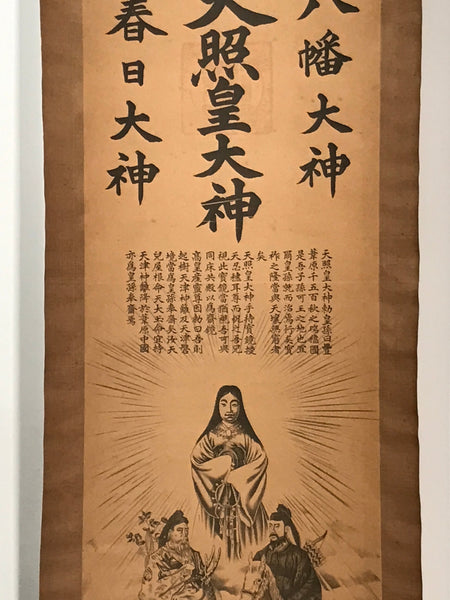 八幡大神
天照皇大神
春日大神
天照皇大神勅皇孫曰豐
葦原千五百秋之瑞穗國
是吾子孫可王之地也宜
爾皇孫就而治焉行矣寶
祚之隆當與天壤無窮者
矣
天照皇大神手持寶鏡授
天忍穗耳尊而祝之曰吾兒
視此寶鏡當猶視吾可與
同床共殿以爲齋鏡
高皇產靈尊因勅曰吾則
起樹天津神籬及天津磐
境當爲皇孫奉齋矣汝天
兒屋根命天太玉命宜持
天津神籬降於葦原中國
亦爲皇孫奉齋焉